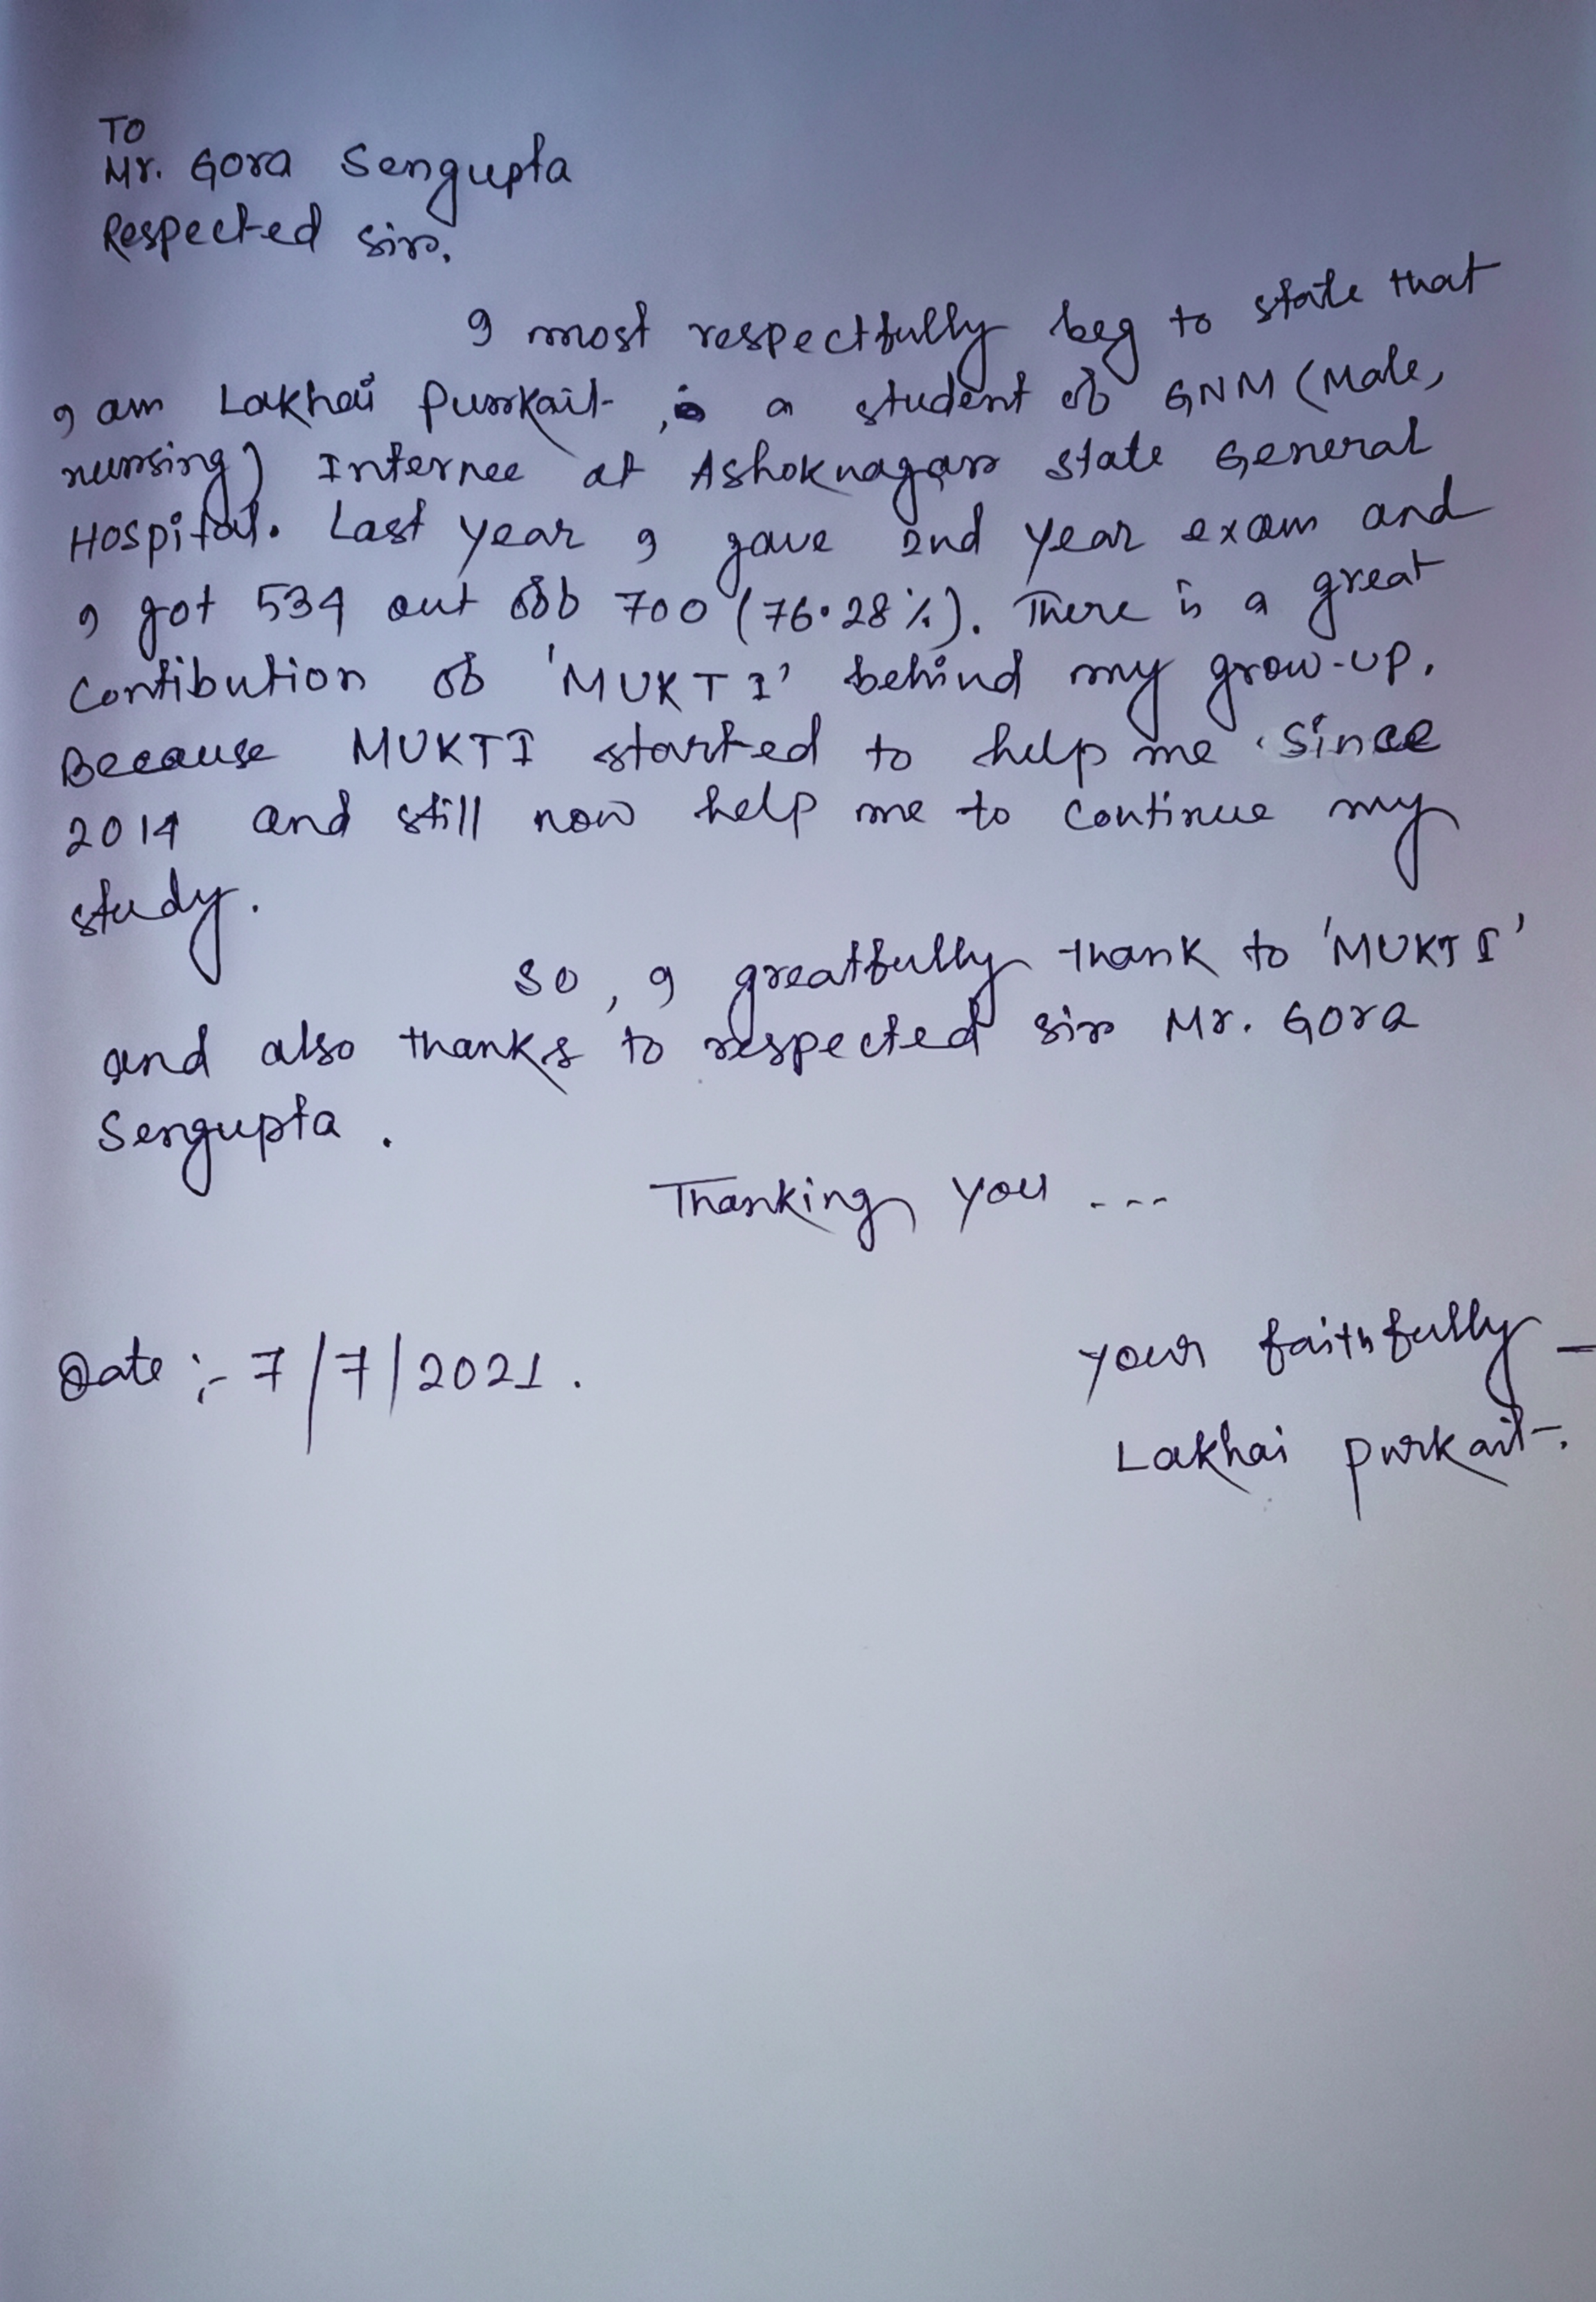 TO
Mr. Gora Sengupta
Respected sir.
I most respectfully beg to state that
I am Lakhai Purkait, a student of GNM (Male,
nursing) Internee at Ashoknagar state General
Hospital. Last year I gave 2nd year exam and
I got 534 out of 700 (76.28%). There is a great
Contibution of 'MUKTI' behind my grow-up.
Because MUKTI started to help me since
2014 and still now help me to continue my
study.
So, I greatfully thank to 'MUKTI'
and also thanks to respected sir Mr. Gora
Sengupta.
Thanking you ---
Date :- 7/7/2021.
your faithfully -
Lakhai purkait.